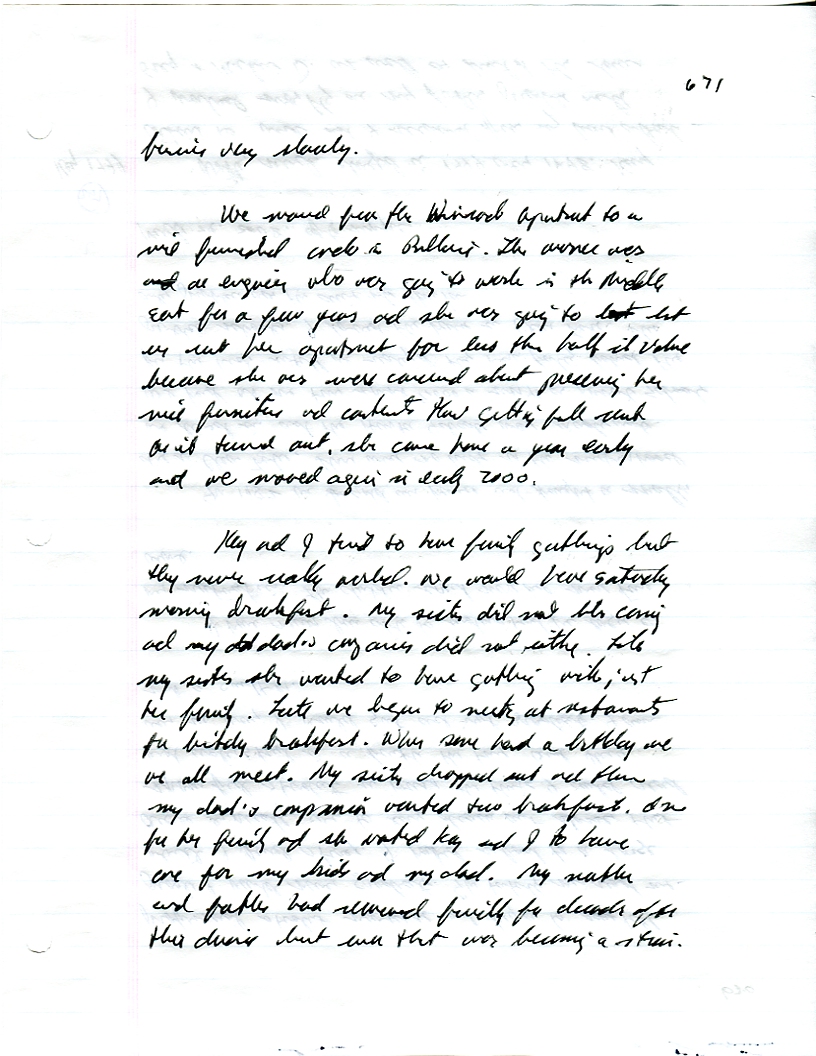 671
very slowly.
We moved from the apartment to a
nice furnished condo in. The owner was
an engineer who was going to work in the Middle
East for a few years and she was going to let
us rent her apartment for less than half its value
because she was more concerned about preserving her
nice furniture and contents than getting full rent
As it turned out, she came home a year early
and we moved again in early 2000.
Kay and I tried to have family gatherings but
they never really worked. We would have Saturday
morning breakfast. My sister did not like coming
and my dad's companion did not either. Like
my sister she wanted to have gathering with just
her family. Later we began to meet at restaurants
for birthday breakfast. When some had a birthday we
we all meet. My sister dropped out and then
my dad's companion wanted two breakfast. One
for her family and she wanted Kay and I to have
one for my kids and my dad. My mother
and father had remained friendly for decades after
their divorce but even that was becoming a strain.